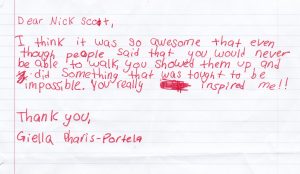 Dear Nick Scott,
I think it was so awesome that even
though people said that you would never
be able to walk, you showed them up and
did something that was tought to be
impossible. You really inspired me!!
Thank you,
Giella Pharis-Portela